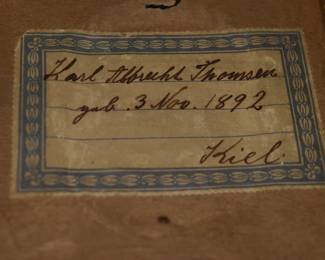 Karl Albrecht Thomsen
geb. 3 Nov. 1892
Kiel.